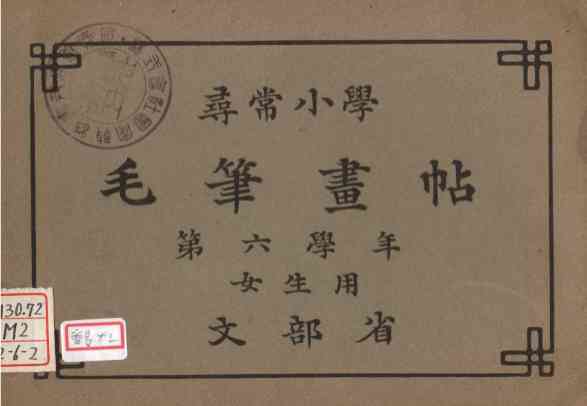 尋常小學
毛筆畫帖
第六學年
女生用
文部省
130.72
M2
2-6-2